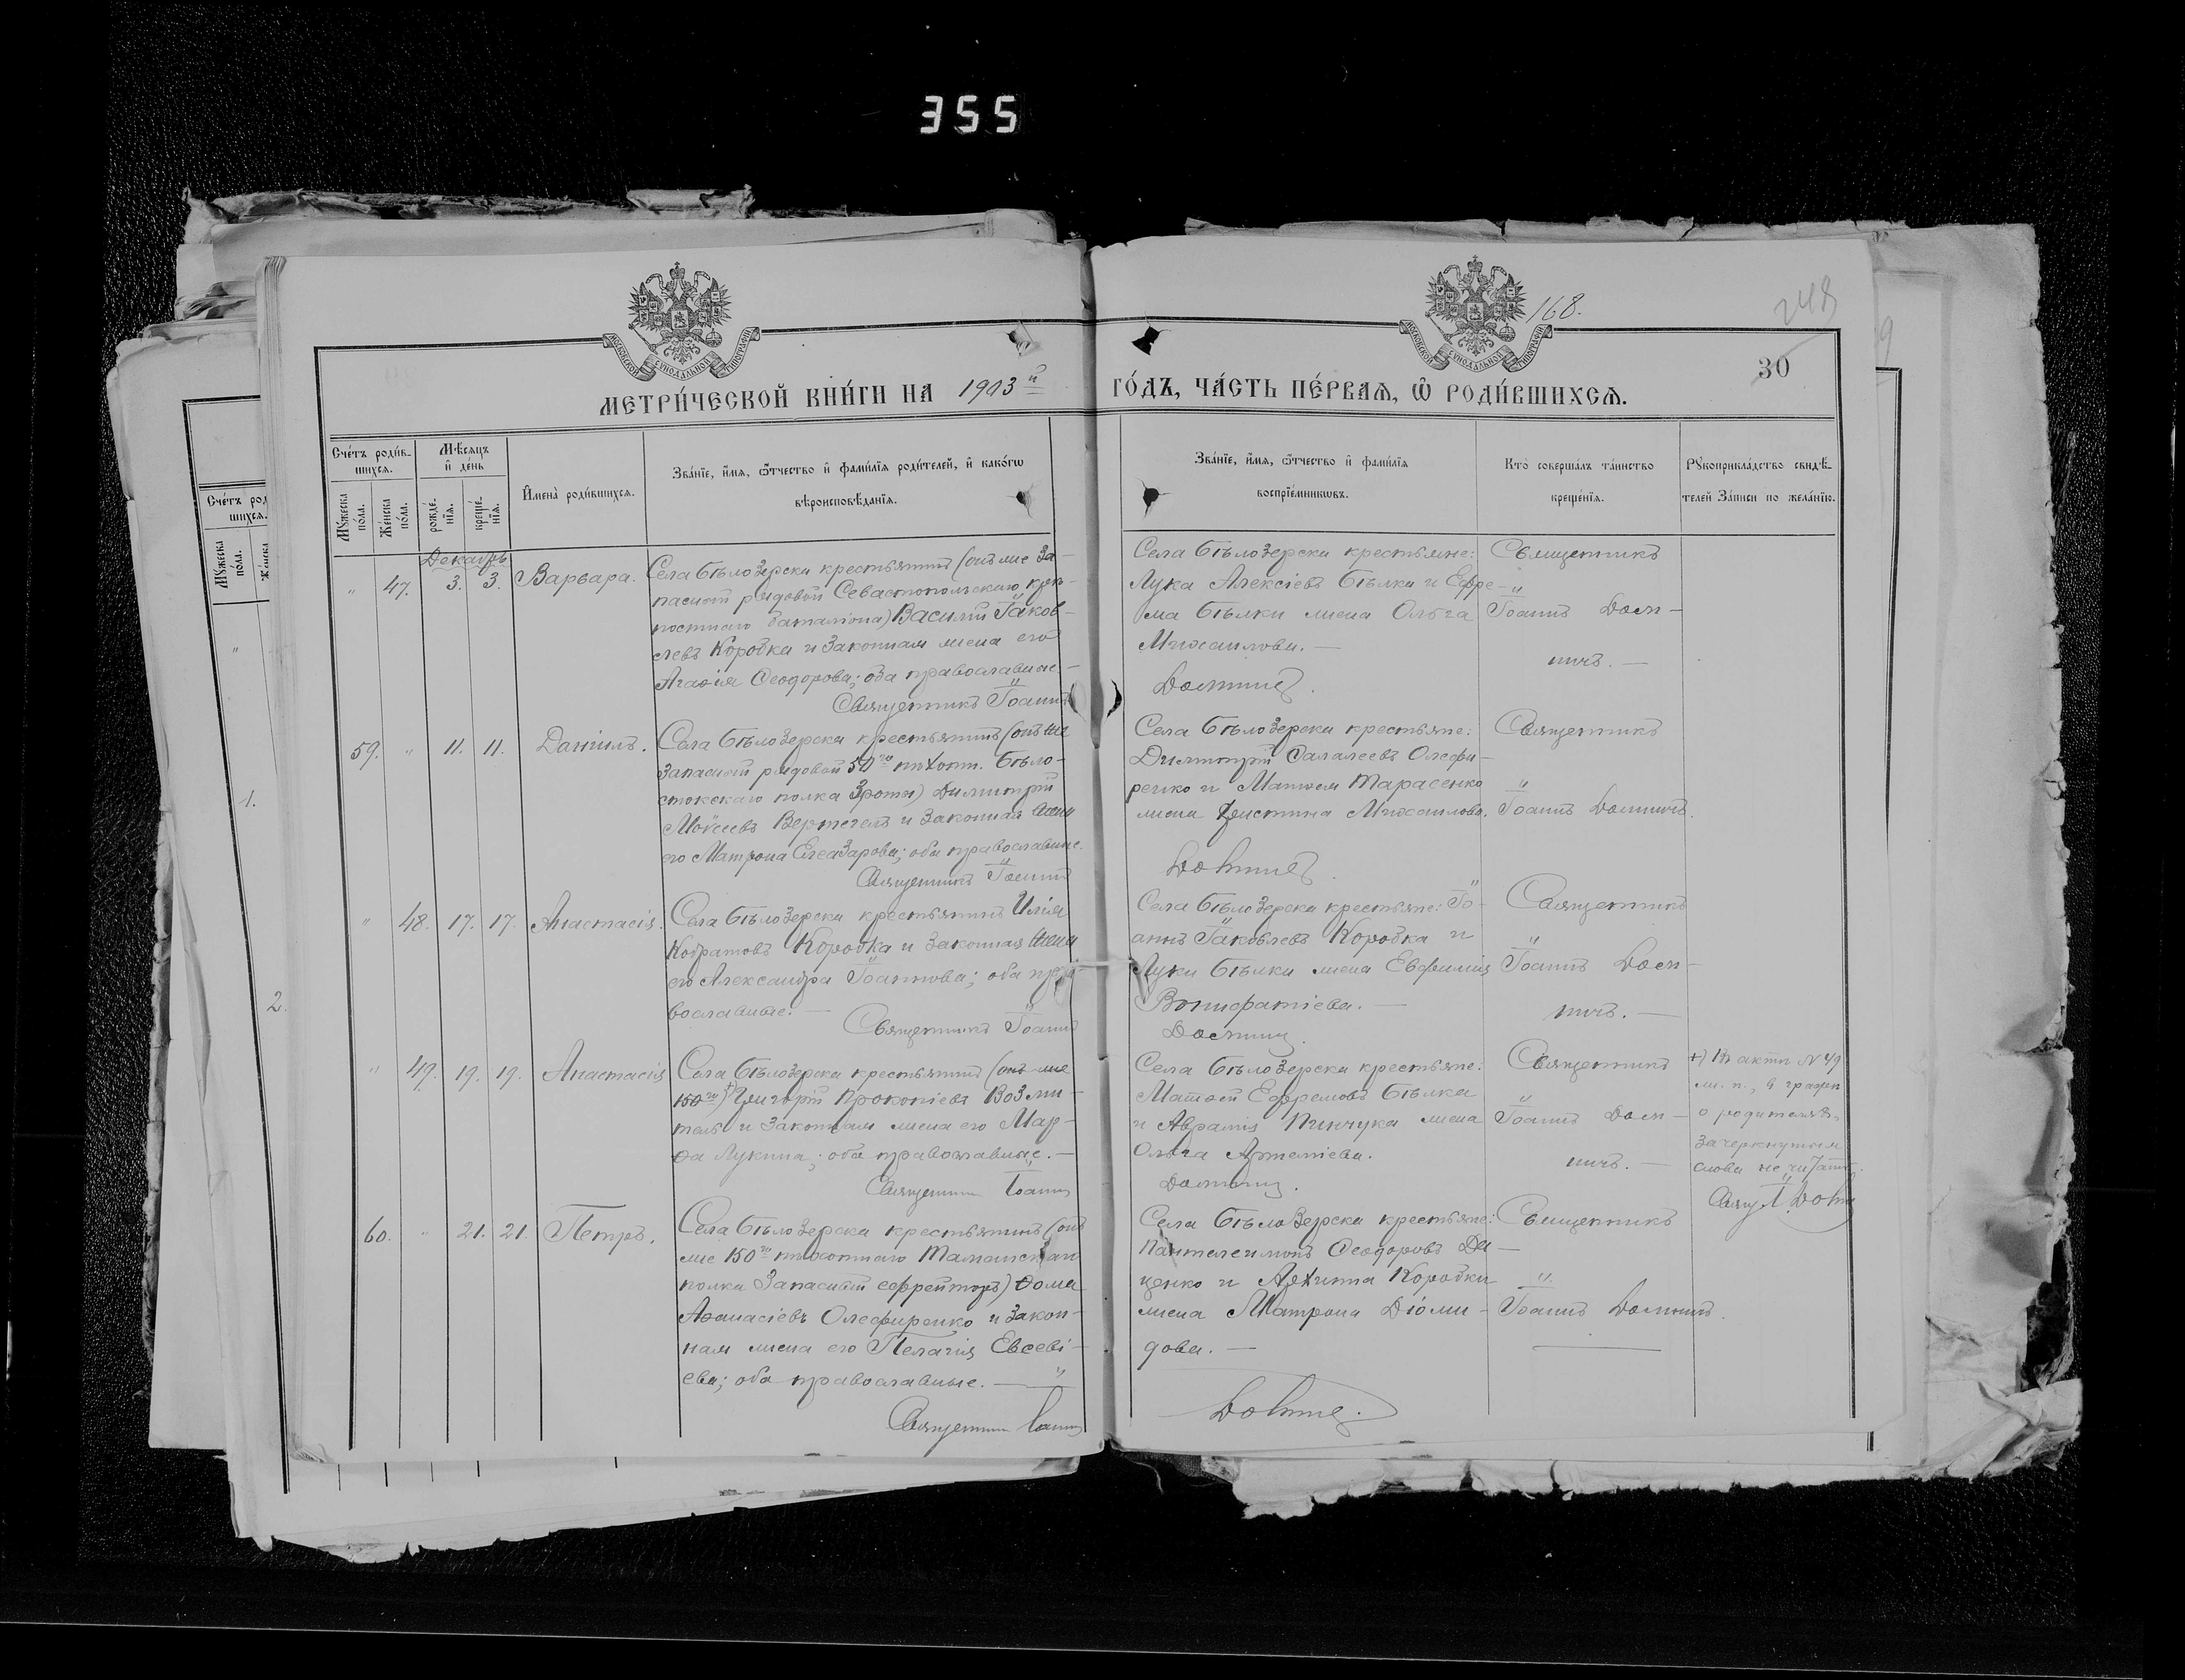 355
168.
248
30
МЕТРИ́ЧЕСКОЙ КНИ́ГИ НА 1903й
ГО́ДЪ, ЧА́СТЬ ПЕ́РВАѦ, Ѡ҆ РОДИ́ВШИХСѦ.
Счетъ роди́в-
шихся.
Мѣсяцъ
и де́нь
Мꙋжеска по́ла.
Же́нска по́ла.
рожде́нїя.
креще́нїя.
И҆мена̀ роди́вшихся.
Зва́нїе, и҆́мя, ѻ҆́тчество и҆ фами́лїя роди́телей, и҆ како́гѡ
вѣроисповѣ́данїя.
Зва́нїе, и҆́мя, ѻ҆́тчество и҆ фами́лїя
воспрїе́мникѡвъ.
Кто̀ соверша́лъ та́инство
креще́нїя.
Рꙋкоприкла́дство свидѣ́-
телей за́писи по жела́нїю.
Декабрь
" 47. 3. 3. Варвара.
Села Бѣлозерска крестьянинъ (онъ же за-
пасный рядовой Севастопольскаго крѣ-
постнаго баталіона) Василій Яков-
левъ Коробка и законная жена его
Агаѳія Ѳеодорова; оба православные.-
Священникъ Іоаннъ
Села Бѣлозерска крестьяне:
Лука Алексіевъ Бѣлка и Ефре-
ма Бѣлки жена Ольга
Михаилова. -
Священникъ
Іоаннъ
59. " 11. 11. Даніилъ.
Села Бѣлозерска крестьянинъ (онъ же
запасный рядовой 50го пѣхотн. Бѣло-
стокскаго полка 3 роты) Димитрій
Моѵсеевъ Вертегелъ и законная жена
его Матрона Елеазарова; оба православные.
Священникъ Іоаннъ
Села Бѣлозерска крестьяне:
Димитрій Фалалеевъ Олефи-
ренко и Матѳея Тарасенко
жена Христина Михаилова.
Священникъ
Іоаннъ
" 48. 17. 17. Анастасія.
Села Бѣлозерска крестьянинъ Илія
Кодратовъ Коробка и законная жена
его Александра Іоаннова; оба пра-
вославные. -
Священникъ Іоаннъ
Села Бѣлозерска крестьяне: Іо-
аннъ Яковлевъ Коробка и
Луки Бѣлки жена Евфимія
Вонифатіева. -
Священникъ
Іоаннъ
" 49. 19. 19. Анастасія
Села Бѣлозерска крестьянинъ (онъ же
150го) +) Григорій Прокопіевъ Возми-
тель и законная жена его Мар-
ѳа Лукина; оба православные. -
Священникъ Іоаннъ
Села Бѣлозерска крестьяне:
Матѳей Ефремовъ Бѣлка
и Аврамія Пинчука жена
Ольга Артеміева.
Священникъ
Іоаннъ
+) Въ актѣ № 49
ж. п., в графѣ
о родителяхъ
зачеркнутыя
слова не читать.
Свящ. І.
60. " 21. 21. Петръ.
Села Бѣлозерска крестьянинъ (онъ
же 150го пѣхотнаго Таманскаго
полка запасный ефрейторъ) Ѳома
Аѳанасіевъ Олефиренко и закон-
ная жена его Пелагія Евсеві-
ева; оба православные. -
Священникъ Іоаннъ
Села Бѣлозерска крестьяне:
Пантелеимонъ Ѳеодоровъ Да-
ценко и Архиппа Коробки
жена Матрона Діоми-
дова. -
Священникъ
Іоаннъ
1.
2.